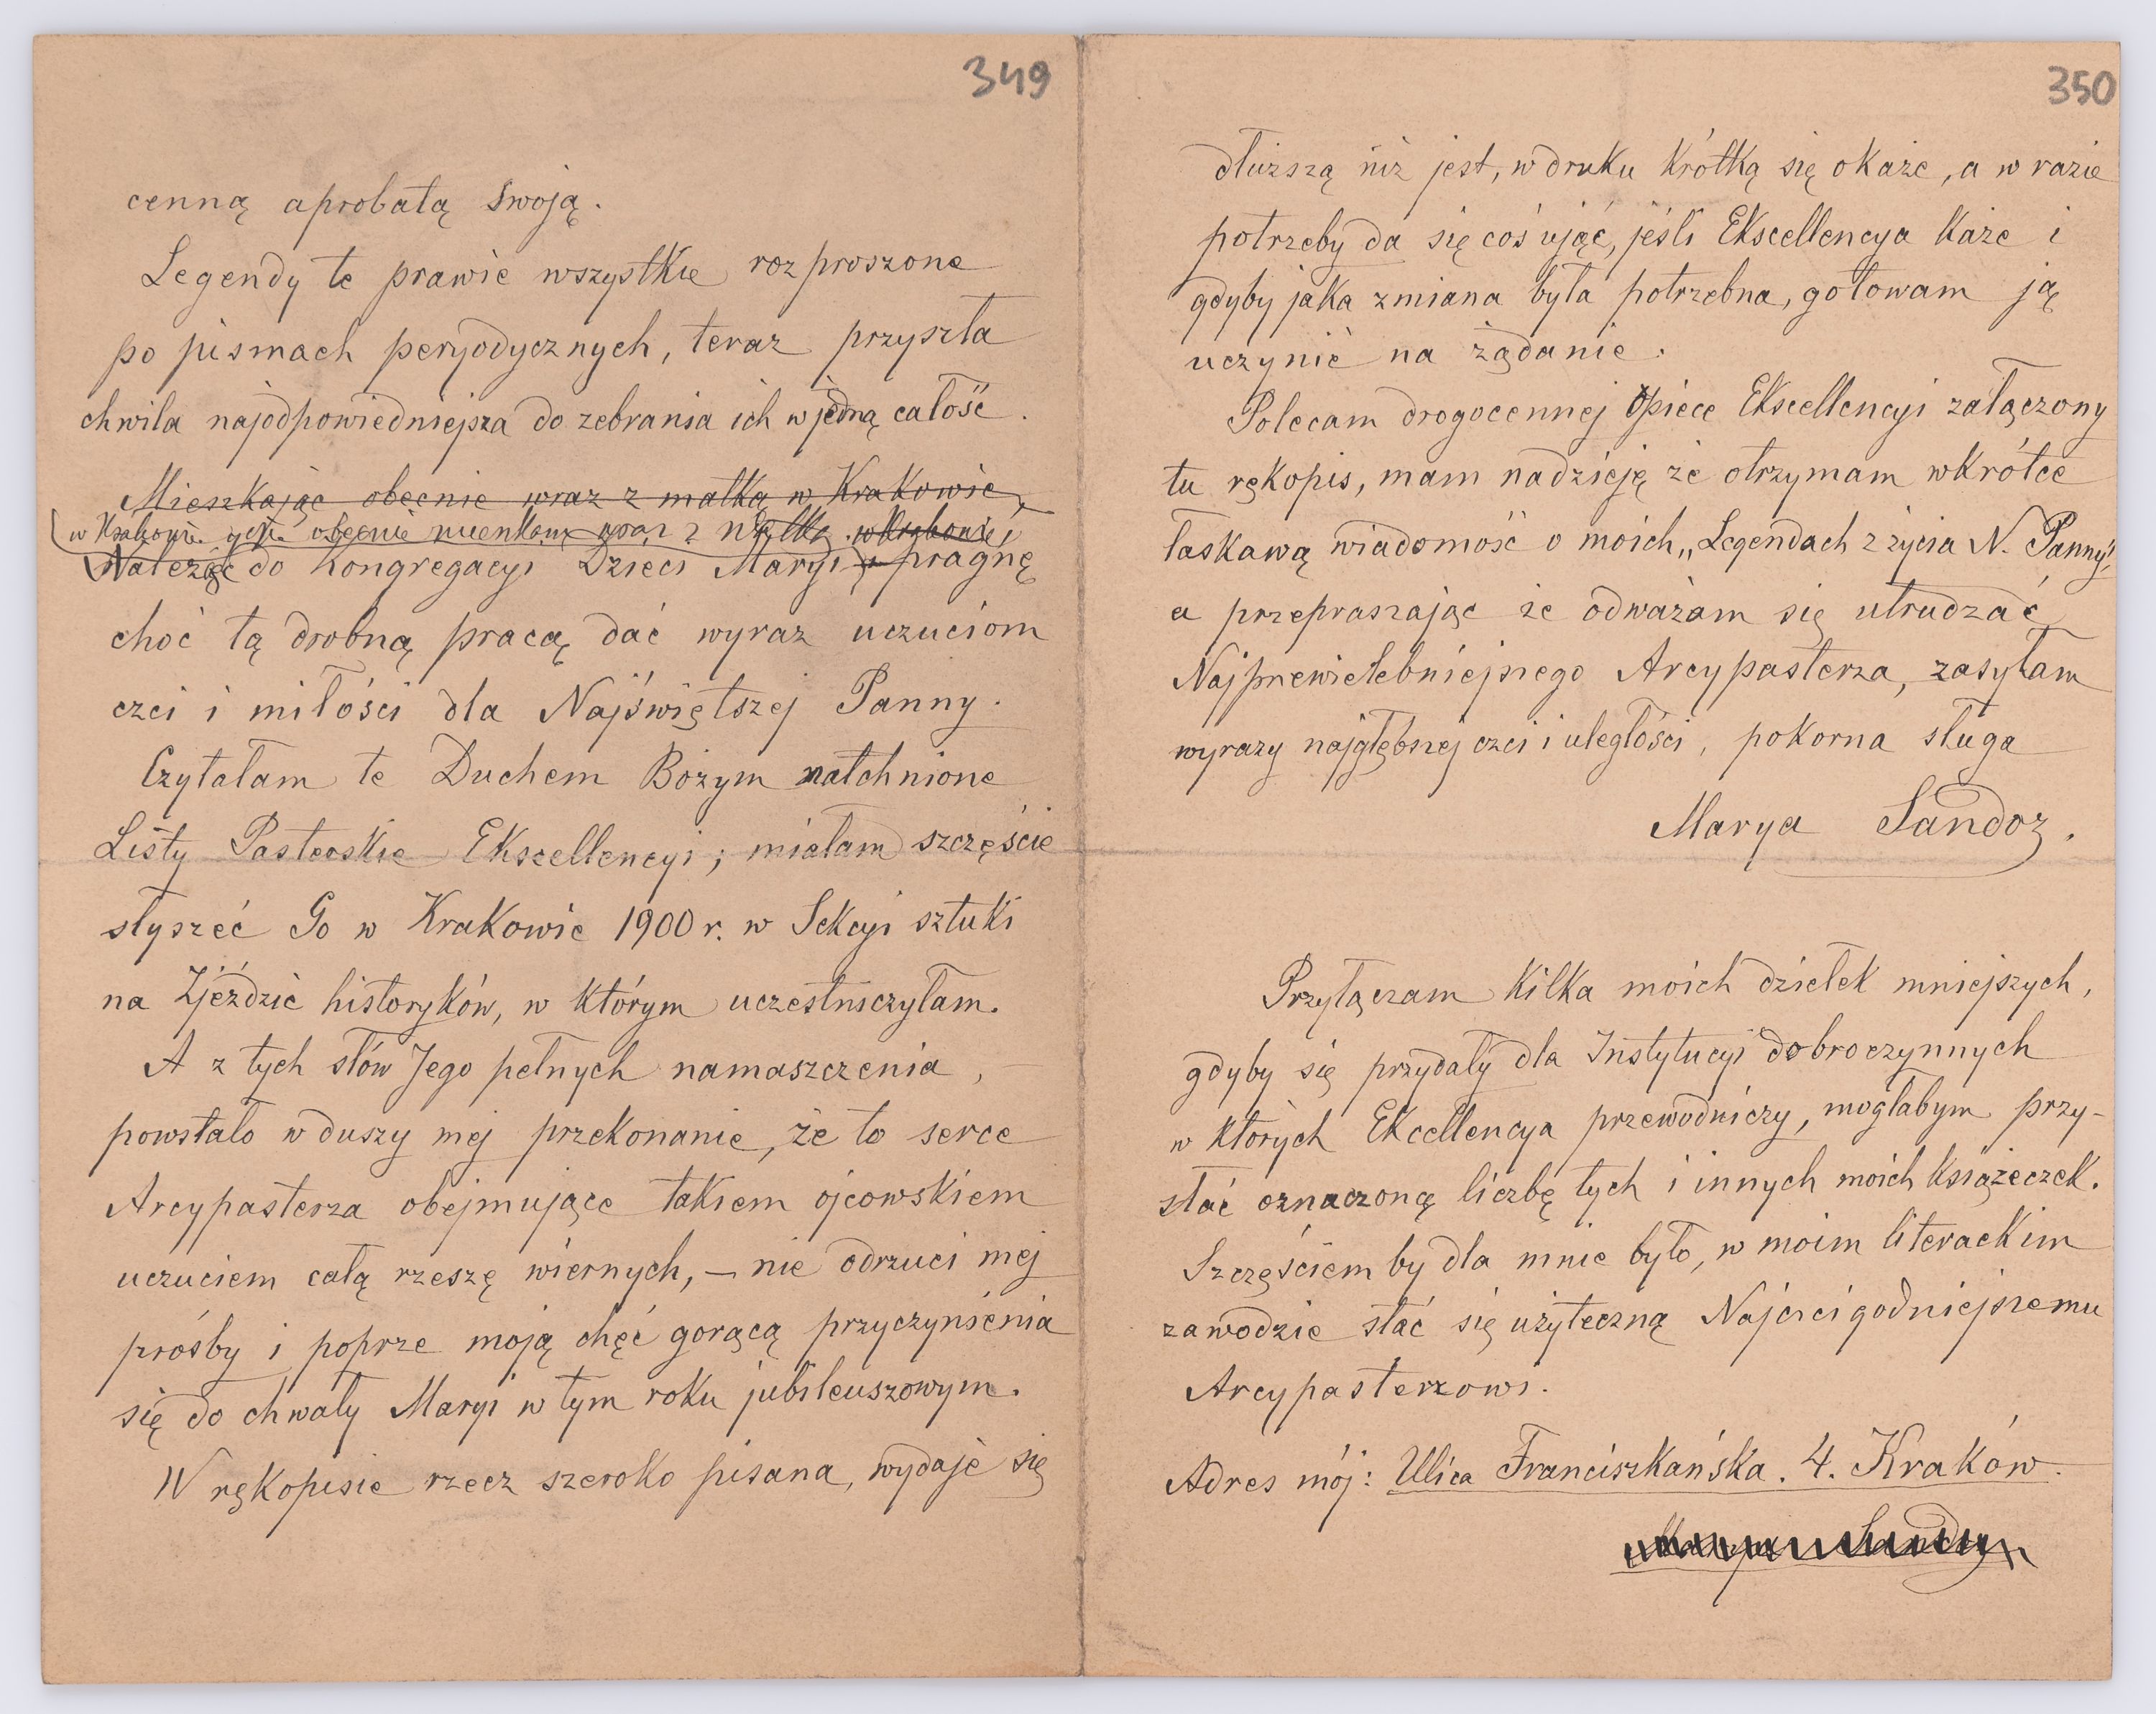 349
cenną aprobatą swoją.
Legendy te prawie wszystkie rozproszone
po pismach peryodycznych, teraz przyszła
chwila najodpowiedniejsza do zebrania ich w jedną całość.
Mieszkając obecnie wraz z matką w Krakowie,
w Krakowie gdzie obecnie mieszkam wraz z matką w Krakowie,
Należąc do Kongregacyi Dzieci Maryi, pragnę
choć tą drobną pracą dać wyraz uczuciom
czci i miłości dla Najświętszej Panny.
Czytałam te Duchem Bożym natchnione
Listy Pasterskie Ekscellencyi; miałam szczęście
słyszeć Go w Krakowie 1900 r. w Sekcyi sztuki
na Zjeździe historyków, w którym uczestniczyłam.
A z tych słów Jego pełnych namaszczenia,
powstało w duszy mej przekonanie, że to serce
Arcypasterza obejmujące takiem ojcowskiem
uczuciem całą rzeszę wiernych, — nie odrzuci mej
prośby i poprze moją chęć gorącą przyczynienia
się do chwały Maryi w tym roku jubileuszowym.
W rękopisie rzecz szeroko pisana, wydaje się
350
dłuższą niż jest, w druku krótką się okaże, a w razie
potrzeby da się coś ująć, jeśli Ekscellencya każe i
gdyby jaka zmiana była potrzebna, gotowam ją
uczynić na żądanie.
Polecam drogocennej Opiece Ekscellencyi załączony
tu rękopis, mam nadzieję że otrzymam wkrótce
łaskawą wiadomość o moich „Legendach z życia N. Panny",
a przepraszając że odważam się utrudzać
Najprzewielebniejszego Arcypasterza, zasyłam
wyrazy najgłębszej czci i uległości, pokorna sługa
Marya Sandoz.
Przyłączam kilka moich dziełek mniejszych,
gdyby się przydały dla Instytucyi dobroczynnych
w których Ekcellencya przewodniczy, mogłabym przy-
słać oznaczoną liczbę tych i innych moich książeczek.
Szczęściem by dla mnie było, w moim literackim
zawodzie stać się użyteczną Najczcigodniejszemu
Arcypasterzowi.
Adres mój: Ulica Franciszkańska. 4. Kraków.